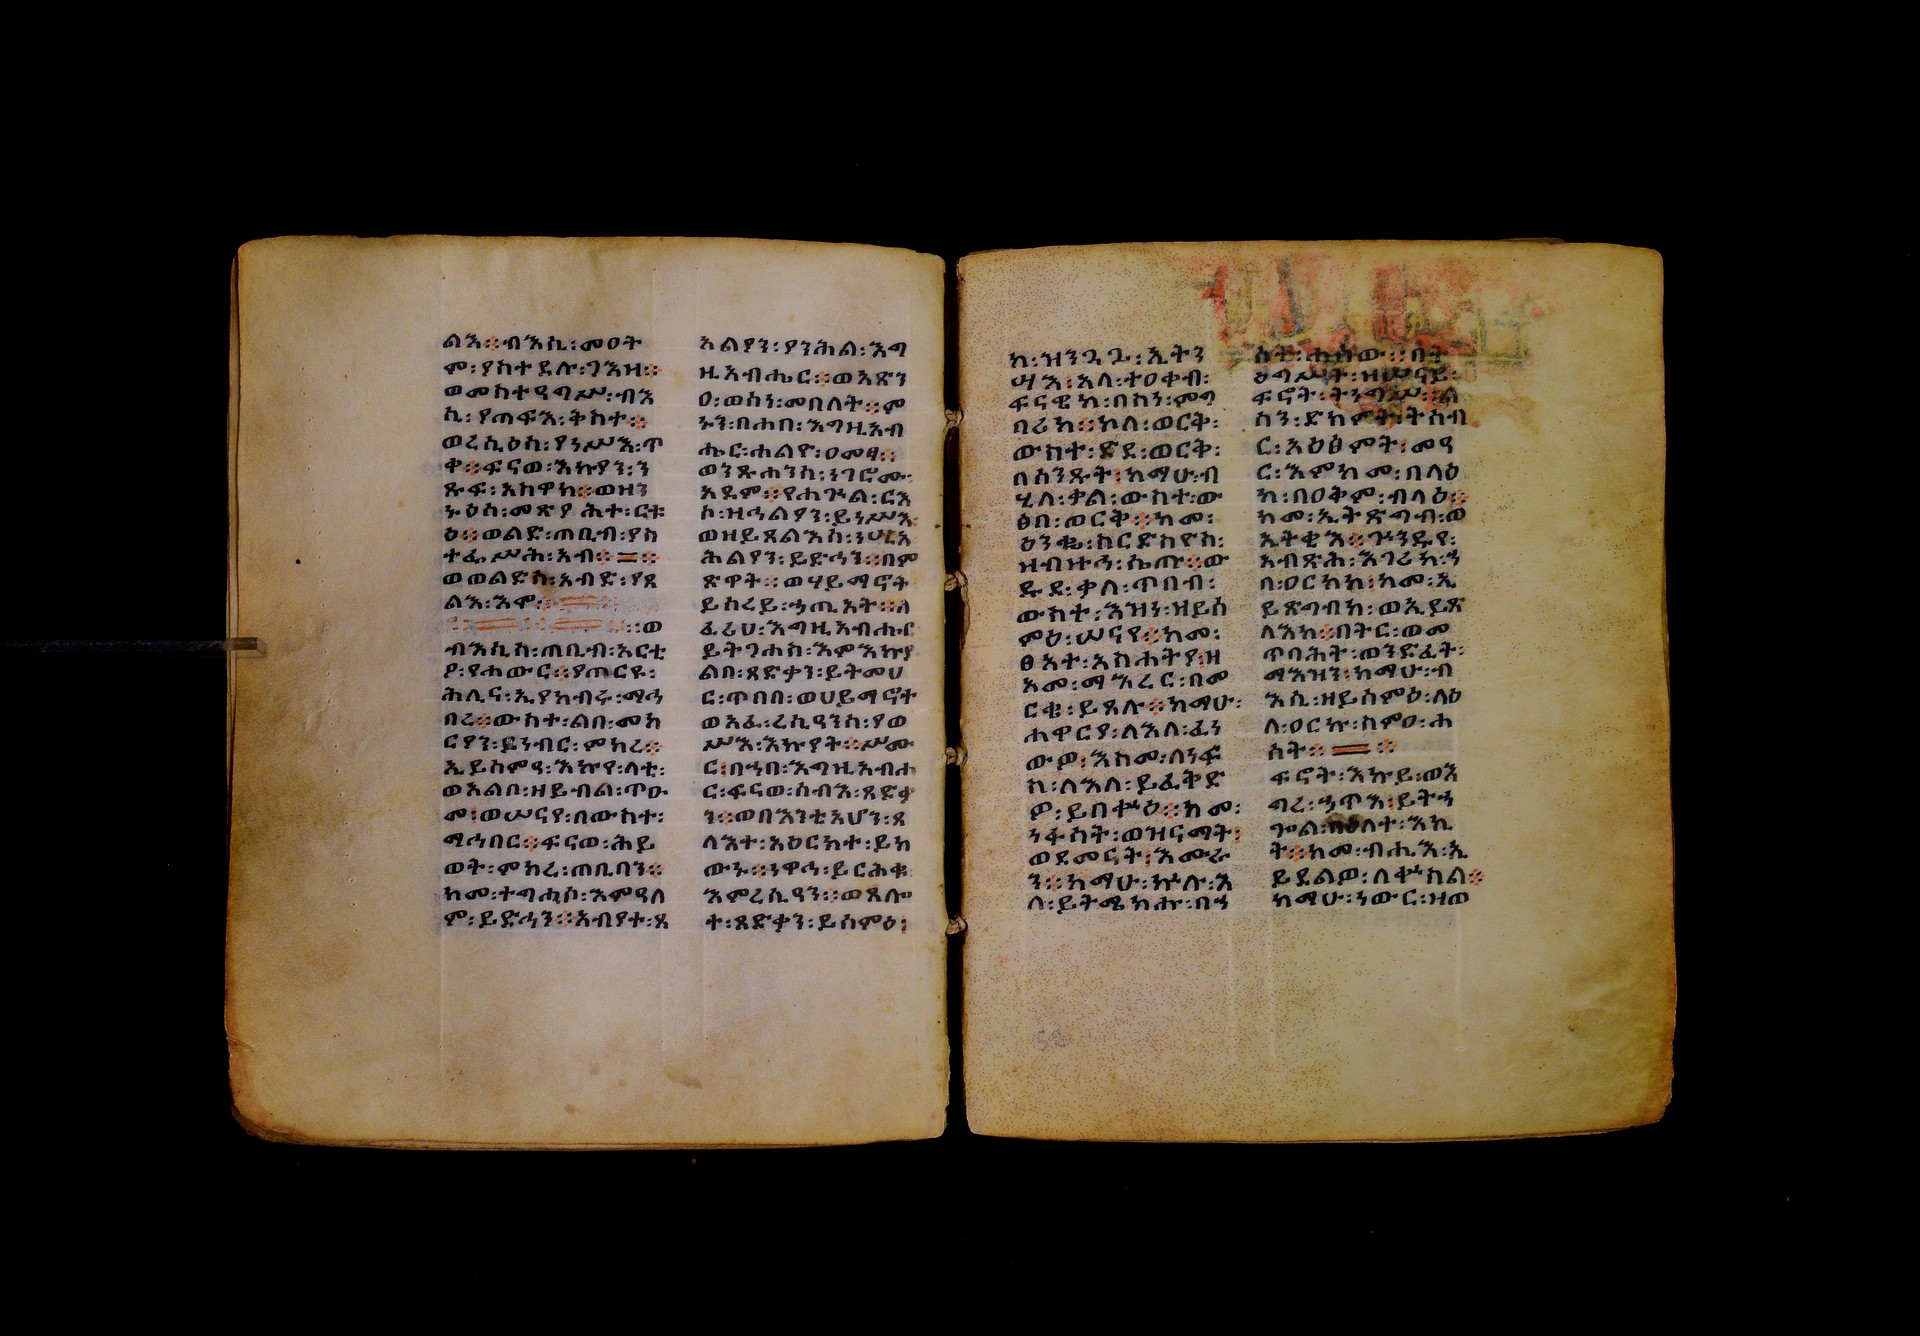 ልእ።ብእሲ፡መዐት
ም፡ያስተደሉ፡ገእዝ።
ወመስተዓግሥ፡ብእ
ሲ፡የጠፍእ፡ቅስተ።
ወረሲዕሰ፡የነሥእ፡ጥ
ቀ።ፍናወ፡እኩያን፡ን
ጹፍ፡አስዋክ።ወዘን
ኡ፡መጽያሕተ፡ርቱ
ዕ።ወልድ፡ጠቢብ፡ያስ
ተፌሥሕ፡አብ።
ወወልድሰ፡አብድ፡የጸ
ልእ፡እሞ።
ወ
ብእሲሰ፡ጠቢብ፡አርቲ
ዖ፡የሐውር።የጠርዩ፡
ሕሊና፡ኢያከብሩ፡ማኅ
በረ።ውስተ፡ልበ፡መከ
ርያን፡ይነብር፡ምክረ።
ኢይሰምዓ፡እኩየ፡ላቲ፡
ወአልቦ፡ዘይብል፡ጥዑ
መ፡ወሠናየ፡በውስተ፡
ማኅበር።ፍናወ፡ሕይ
ወት፡ምክረ፡ጠቢባን።
ከመ፡ተግሒሶ፡እምዓለ
ም፡ይድኅን።አብያተ፡ጸ
አልያን፡ያንሕል፡እግ
ዚአብሔር።ወአጽን
ዐ፡ወሰነ፡መበለት።ም
ኑን፡በኀበ፡እግዚአብ
ሔር፡ሐልዮ፡ዐመፃ።
ወንጹሐንሰ፡ነገሮሙ፡
አደም።የሐጕል፡ርእ
ሶ፡ዝኅልያን፡ይነሥእ
ወዘይጸልእሰ፡ነሢአ
ሕልያን፡ይድኅን።በም
ጽዋት።ወሃይማኖት
ይሰረይ፡ኃጢአት።ለ
ፈሪሀ፡እግዚአብሔር
ይትገሐስ፡እምእኩያ
ልበ፡ጻድቃን፡ይትመሀ
ር፡ጥበበ፡ወሀይማኖተ
ወአፈ፡ረሲዓንሰ፡ያወ
ሥእ፡እኩያት።ሥሙ
ር፡በኀበ፡እግዚአብሐ
ር፡ፍናወ፡ሰብእ፡ጻድቃ
ን።ወበእንቲአሆን፡ጸ
ላእተ፡አዕርክተ፡ይከ
ውኑ።ነዋኅ፡ይርሕቁ
እምረሲዓን።ወጸሎ
ተ፡ጻድቃን፡ይሰምዕ፡
ሠእ፡አላ፡ተዐቀብ፡
ፍናዊከ፡በሰን፡ምግ
ባሪከ።ኮለ፡ወርቅ፡
ውስተ፡ድደ፡ወርቅ፡
በሰንጹት፡ከማሁ፡ብ
ሂለ፡ቃል፡ውስተ፡ው
ፅበ፡ወርቅ።ከመ፡
ዕንቈ፡ሰርድክዮስ፡
ዝብዙኅ፡ሤጡ።ው
ውስተ፡እዝነ፡ዝይሰ
ምዕ፡ሠናየ።ከመ፡
ፀአተ፡አስሐትያ፡ዘ
አመ፡ማእረር፡በመ
ርቄ፡ይጼሉ።ከማሁ፡
ሐዋርያ፡ለእለ፡ፈነ
ውዎ፡እስመ፡ለነፍ
ሰ፡ለእለ፡ይፈቅድ
ዎ፡ይበቍዕ።ከመ፡
ነፋሳት፡ወዝናማት፡
ወደመናት፡እሙራ
ን።ከማሁ፡ኵሉ፡እ
ለ፡ይትሜክሑ፡በኀ
ስት፡ሐሰው።በት
ዕግሥት፡ዝሠናይ፡
ፍኖት፡ትንግሥ።ል
ስን፡ድክምት፡ትሰብ
ር፡አዕፅምት፡መዓ
ር፡እምከመ፡በላዕ
ከ፡በዐቅም፡ብላዕ።
ከመ፡ኢትጽግብ፡ወ
ኢትቂእ።ጕንዱየ፡
አብጽሕ፡እገሪከ፡ኀ
በ፡ዐርክከ፡ከመ፡ኢ
ይጽግብከ፡ወኢይጽ
ላእከ።በትር፡ወመ
ጥባሕት፡ወንድፈት፡
ማእዝን፡ከማሁ፡ብ
እሲ፡ዘይሰምዕ፡ለዕ
ለ፡ዐርኩ፡ስምዐ፡ሐ
ሰት።
ፍኖት፡እኩይ፡ወእ
ግረ፡ኃጥእ፡ይትኃ
ጐል፡በዕለተ፡እኪ
ት።ከመ፡ብሒእ፡ኢ
ይደልዎ፡ለቍስል።
ከማሁ፡ነውር፡ዝወ